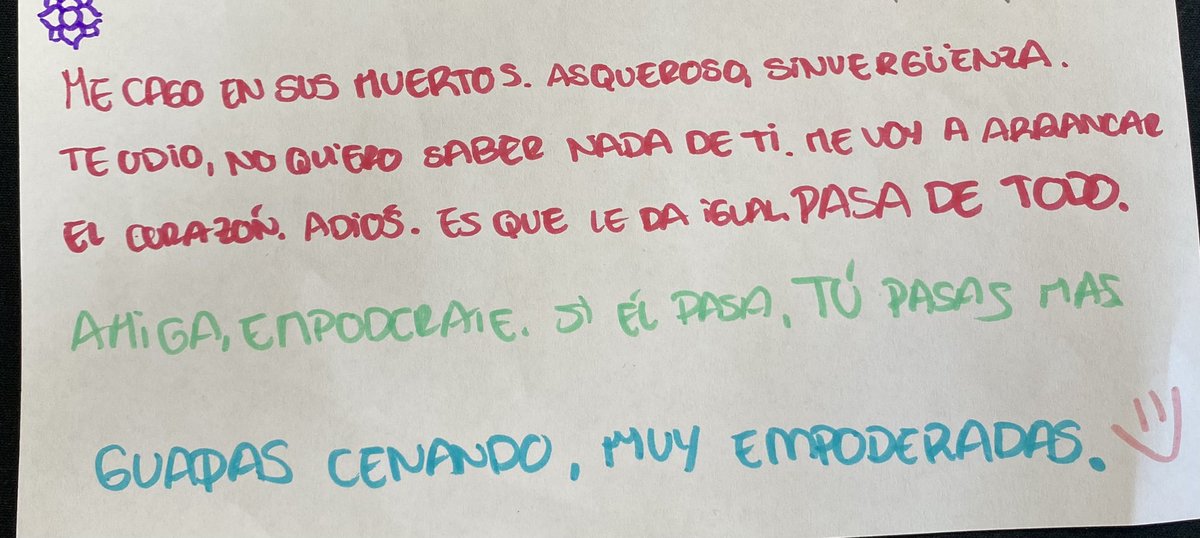 ME CAGO EN SUS MUERTOS. ASQUEROSO, SINVERGÜENZA.
TE ODIO, NO QUIERO SABER NADA DE TI. ME VOY A ARRANCAR
EL CORAZÓN. ADIOS. ES QUE LE DA IGUAL. PASA DE TODO.
AMIGA, EMPODERATE. SI ÉL PASA, TÚ PASAS MAS
GUAPAS CENANDO, MUY EMPODERADAS.